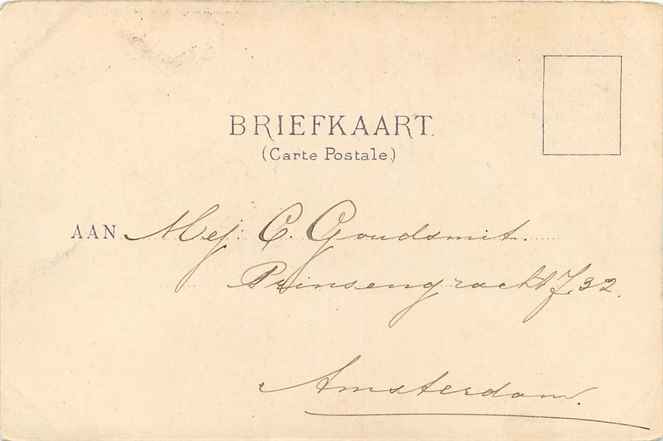 BRIEFKAART.
(Carte Postale.)
AAN Mej: C. Goudsmit.
Prinsengracht 732.
Amsterdam.